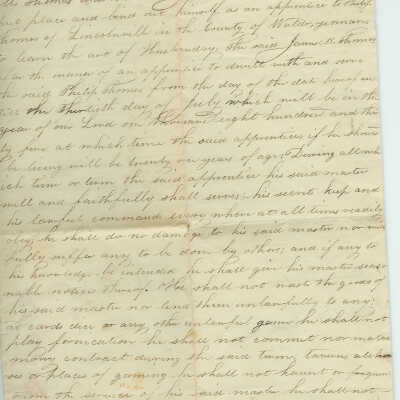 put place and bind out himself as an apprentice to Philip
Thomes of Lincolnville in the County of Waldo, yeoman
to learn the art of Husbandry, the said James R. Thomes
after the manner of an apprentice to dwell with and serve
the said Philip Thomes from the day of the date hereof un
till the thirtieth day of July which will be in the
year of our Lord one thousand eight hundred and thir
ty four at which time the said apprentice if he should
be living will be twenty one years of age; During all which
time or term the said apprentice his said master
well and faithfully shall serve; his secrets keep and
his lawful commands every where at all times readily
obey; he shall do no damage to his said master nor wil
fully suffer any to be done by others; and if any to
his knowledge be intended he shall give his master seaso
nable notice thereof. He shall not wast the goods of
his said master nor lend them unlawfully to any:
at cards dice or any other unlawful game he shall not
play fornication he shall not commit nor matri
mony contract during the said term; taverns ale hou
ses or places of gaming he shall not haunt or frequent
from the service of his said master he shall not